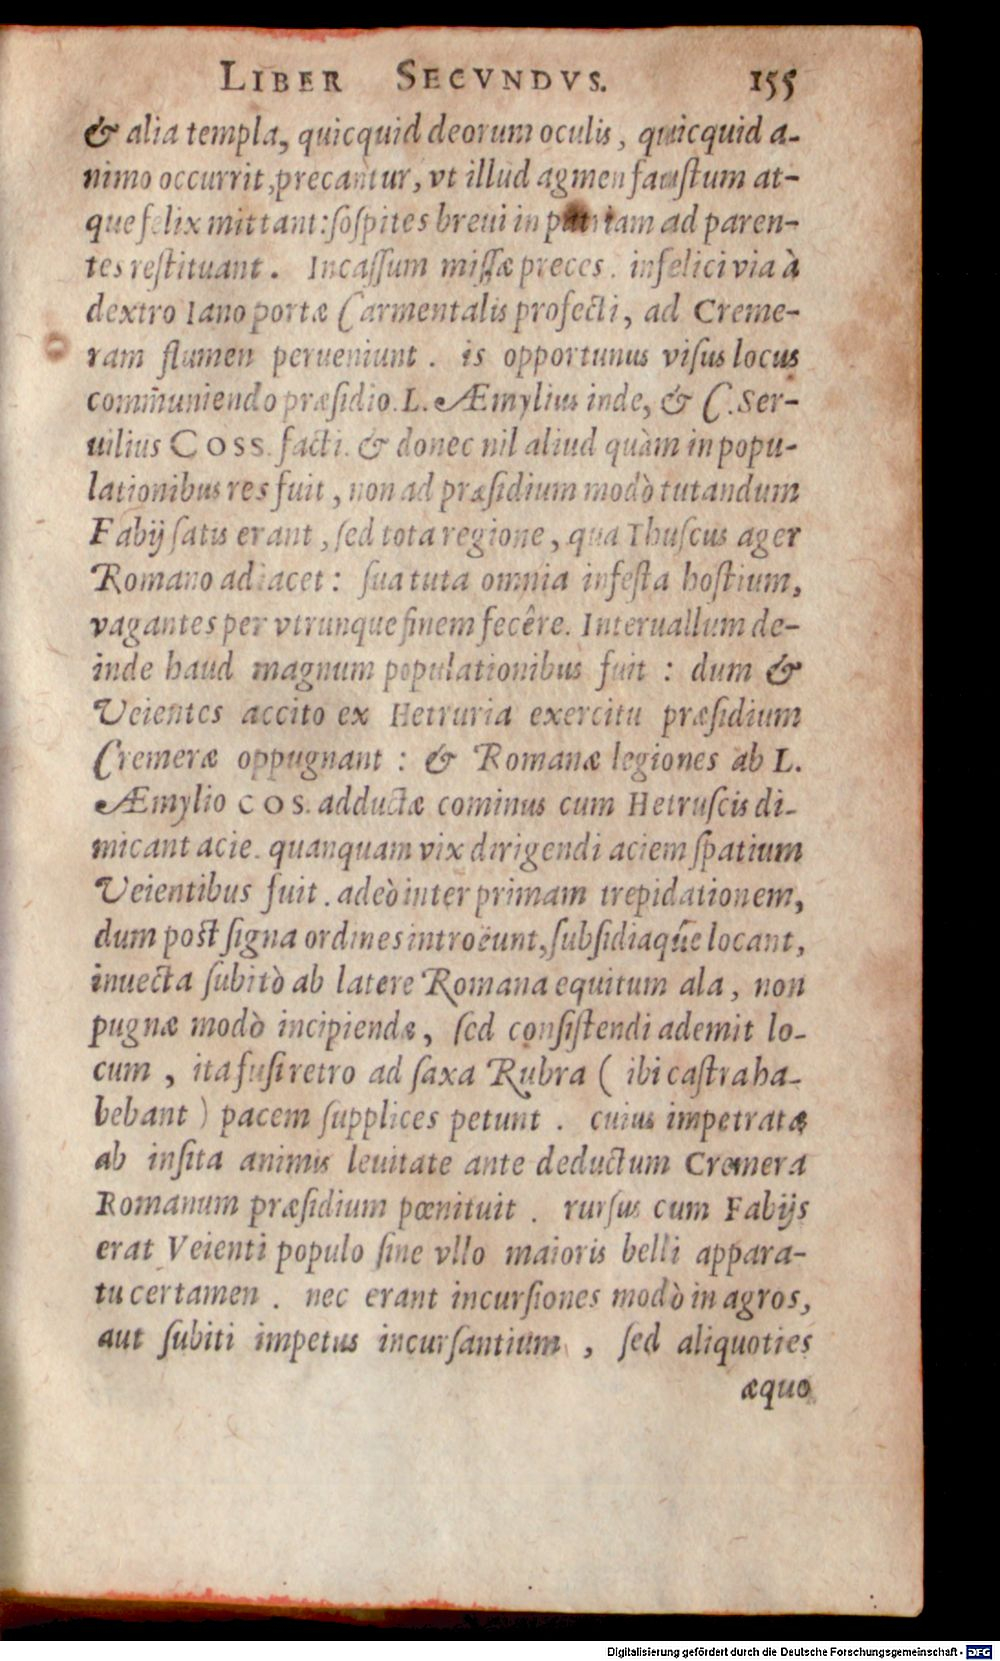 LIBER SECVNDVS. 155
& alia templa, quicquid deorum oculis, quicquid a-
nimo occurrit, precantur, vt illud agmen faustum at-
que felix mittant: sospites breui in patriam ad paren-
tes restituant. Incassum missæ preces. infelici via à
dextro Iano portæ Carmentalis profecti, ad Creme-
ram flumen perueniunt. is opportunus visus locus
com̃uniendo præsidio. L. Æmylius inde, & C. Ser-
uilius COSS. facti. & donec nil aliud quàm in popu-
lationibus res fuit, non ad præsidium modò tutandum
Fabij satis erant, sed tota regione, qua Thuscus ager
Romano adiacet: sua tuta omnia infesta hostium,
vagantes per vtrunque finem fecêre. Interuallum de-
inde haud magnum populationibus fuit: dum &
Veientes accito ex Hetruria exercitu præsidium
Cremeræ oppugnant: & Romanæ legiones ab L.
Æmylio COS. adductæ cominus cum Hetruscis di-
micant acie. quanquam vix dirigendi aciem spatium
Veientibus fuit. adeò inter primam trepidationem,
dum post signa ordines introëunt, subsidiaq́ue locant,
inuecta subitò ab latere Romana equitum ala, non
pugnæ modò incipiendæ, sed consistendi ademit lo-
cum, ita fusi retro ad saxa Rubra (ibi castra ha-
bebant) pacem supplices petunt. cuius impetratæ
ab insita animis leuitate ante deductum Cremera
Romanum præsidium pœnituit. rursus cum Fabijs
erat Veienti populo sine vllo maioris belli appara-
tu certamen. nec erant incursiones modò in agros,
aut subiti impetus incursantium, sed aliquoties
æquo
Digitalisierung gefördert durch die Deutsche Forschungsgemeinschaft - DFG